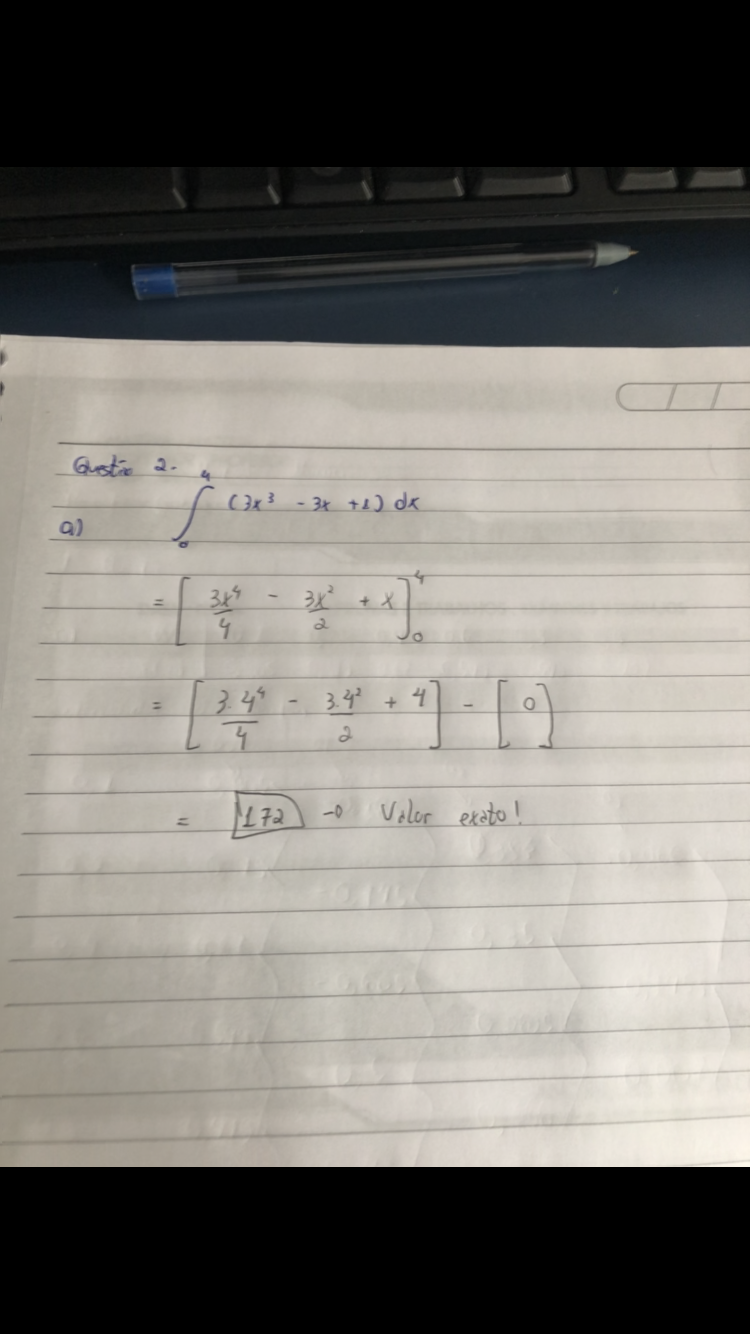 Questão 2.
a) ∫₀⁴ (3x³ - 3x + 1) dx
= [3x⁴/4 - 3x²/2 + x]₀⁴
= [3.4⁴/4 - 3.4²/2 + 4] - [0]
= 172 → Valor exato!